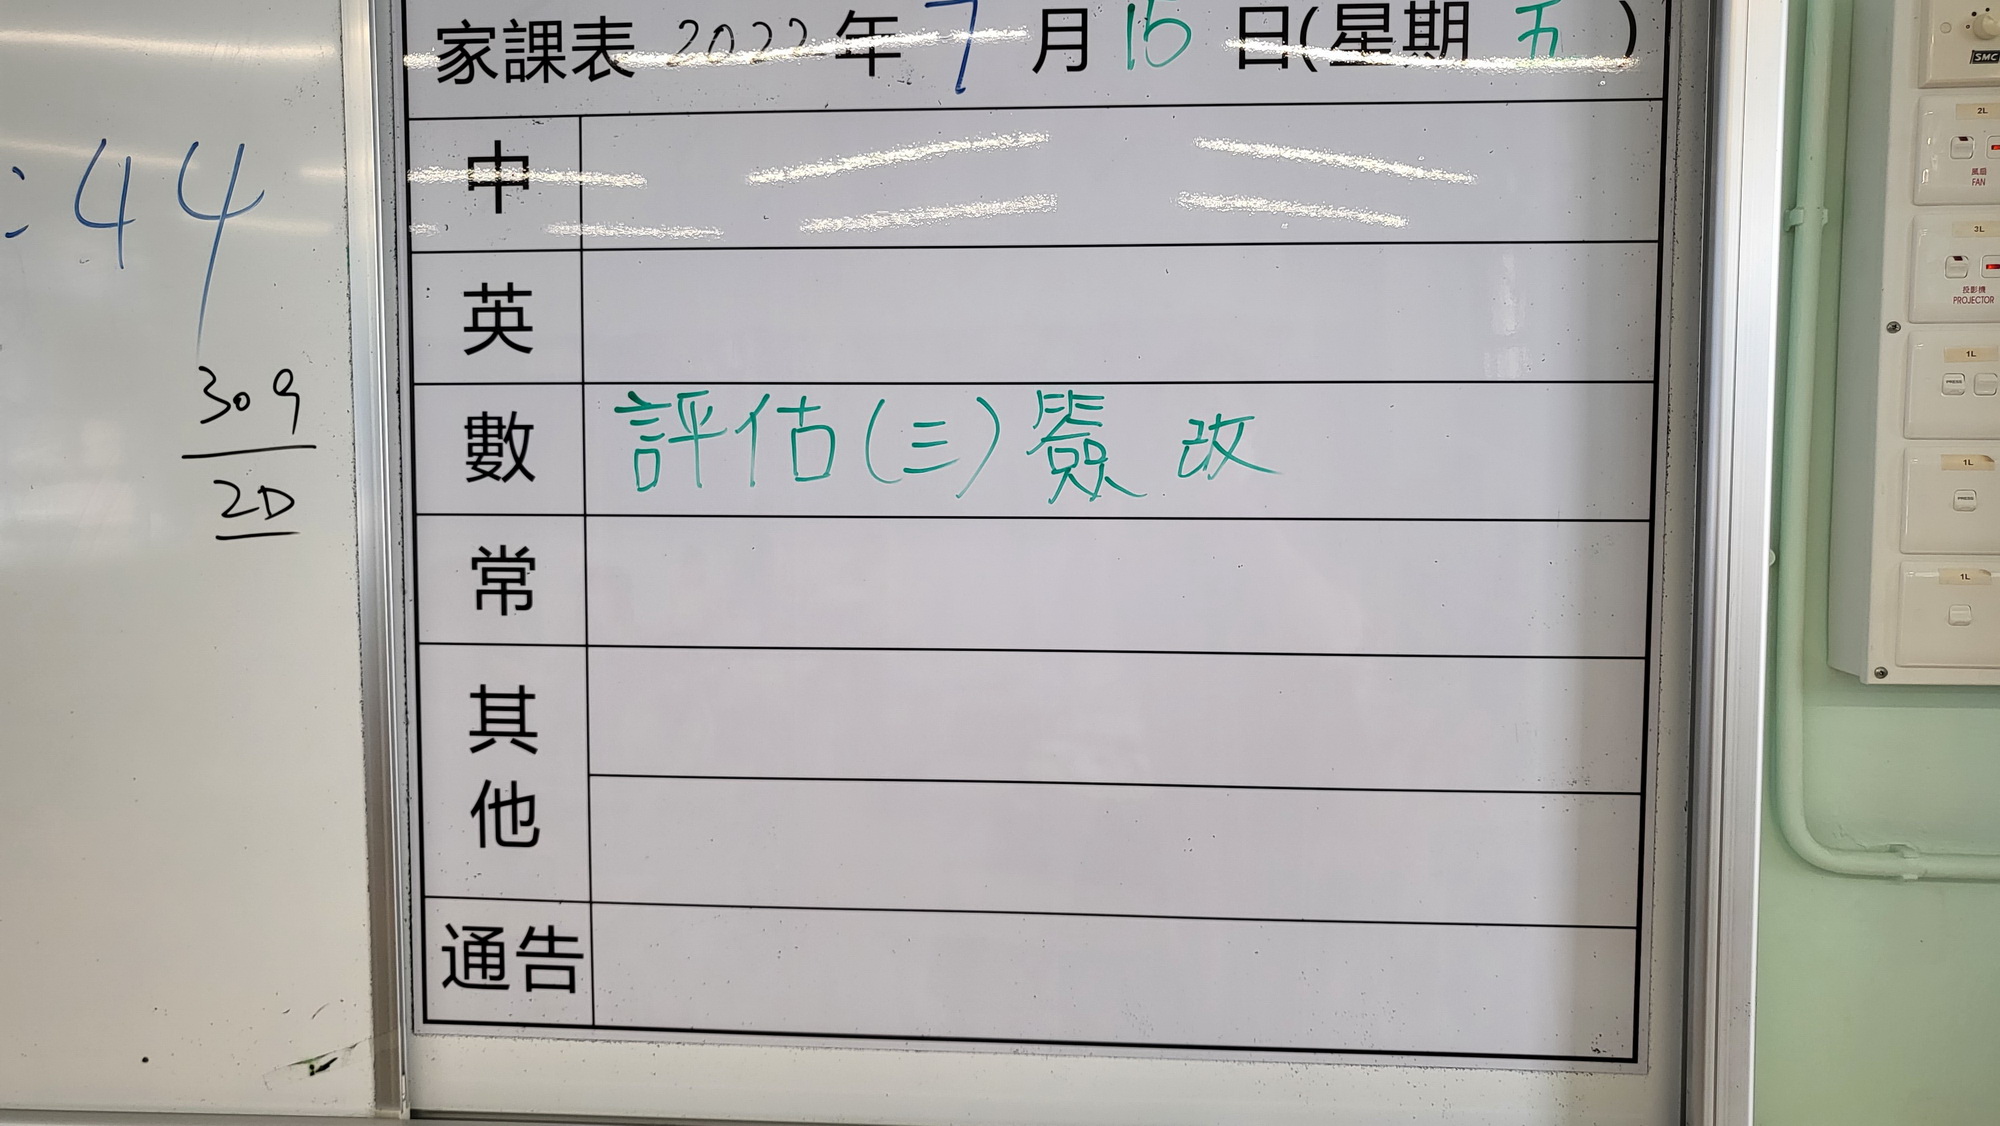 家課表 2022 年 7 月 15 日(星期 五 )
中
英
數 評估(三)簽 改
常
其他
通告
:44
309
20
SMC
2L
風扇
FAN
3L
投影機
PROJECTOR
1L
PRESS
1L
PRESS
1L